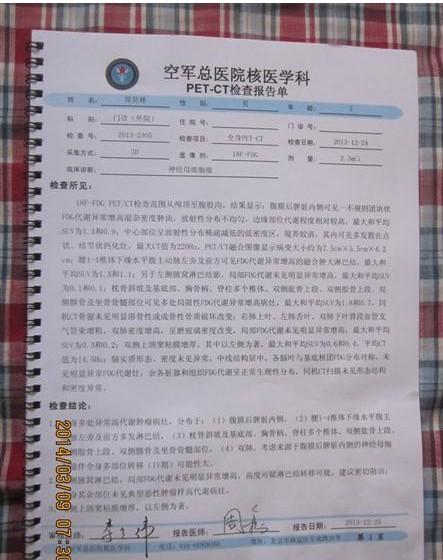 空军总医院核医学科
PET-CT检查报告单
姓 名： 性 别： 男 年 龄： 3
科 别： 门诊（外院） 住院号： 门诊号：
检查号： 2013-2305 检查项目： 全身PET-CT 检查日期： 2013-12-24
采集方式： 3D 显像剂： 18F-FDG 剂量： 2.3mCi
临床诊断： 神经母细胞瘤
检查所见：
18F-FDG PET/CT检查范围从颅顶至腹股沟，结果显示：腹膜后脾脏内侧可见一不规则团块状
FDG代谢异常增高混杂密度肿块，放射性分布不均匀，边缘部位代谢程度相对较高，最大和平均
SUV为1.4和0.9，中心部位呈放射性分布稀疏减低的低密度区，境界较清，其内可见多发散在点
状、结节状钙化灶，最大CT值为220Hu，PET/CT融合图像显示病变大小约为7.5cm×5.5cm×4.2
cm；腰1-4椎体下缘水平腹主动脉左旁及前方可见FDG代谢异常增高的融合肿大淋巴结，最大和
平均SUV为1.3和1.1；另于左侧腋窝淋巴结影，局部FDG代谢未见明显异常增高，最大和平均SUV
为0.1和0.1；枕骨斜坡及基底部、胸骨柄、脊柱多个椎体、双侧肱骨上段、双侧股骨上段、双
侧髂骨及坐骨耸部位可见多处局限性FDG代谢异常增高病灶，最大和平均SUV为1.8和0.7，同
机CT骨窗未见明显溶骨性或成骨性骨质破坏改变；右肺上叶、左肺舌叶、双肺下叶背段血管支
气管束增粗，双肺密度增高，呈磨玻璃密度改变，局部FDG代谢未见明显异常增高，最大和平均
SUV为0.3和0.2；双侧上颌窦粘膜增厚，其中以左侧为著，最大和平均SUV为0.6和0.4，平均CT
值为14.5Hu；脑实质形态、密度未见异常，中线结构居中，各脑叶与基底核团FDG分布对称，未
见异常FDG代谢灶；余各脏器和组织FDG代谢呈正常生理性分布，同机CT扫描未见形态结构
和密度异常。
检查结论：
身多处异常高代谢肿瘤病灶，分布于：（1）腹膜后脾脏内侧，（2）腰1-4椎体下缘水平腹主
脉左旁及前方多发淋巴结，（3）枕骨斜坡及基底部、胸骨柄、脊柱多个椎体、双侧肱骨上段、
侧股骨上段、双侧髂骨及坐骨耸部位，（4）双肺，考虑来源于腹膜后脾脏内侧的神经母细
伴全身多部位转移（IV期）可能性大。
腋窝淋巴结，局部FDG代谢未见明显异常增高，高度可疑淋巴结转移可能，建议密切随访；
身其余部位未见典型恶性肿瘤样高代谢病灶。
侧上颌窦粘膜增厚，以左侧为著。
报告医师： 报告日期： 2013-12-25
第 1 页
2014/03/09 07:30